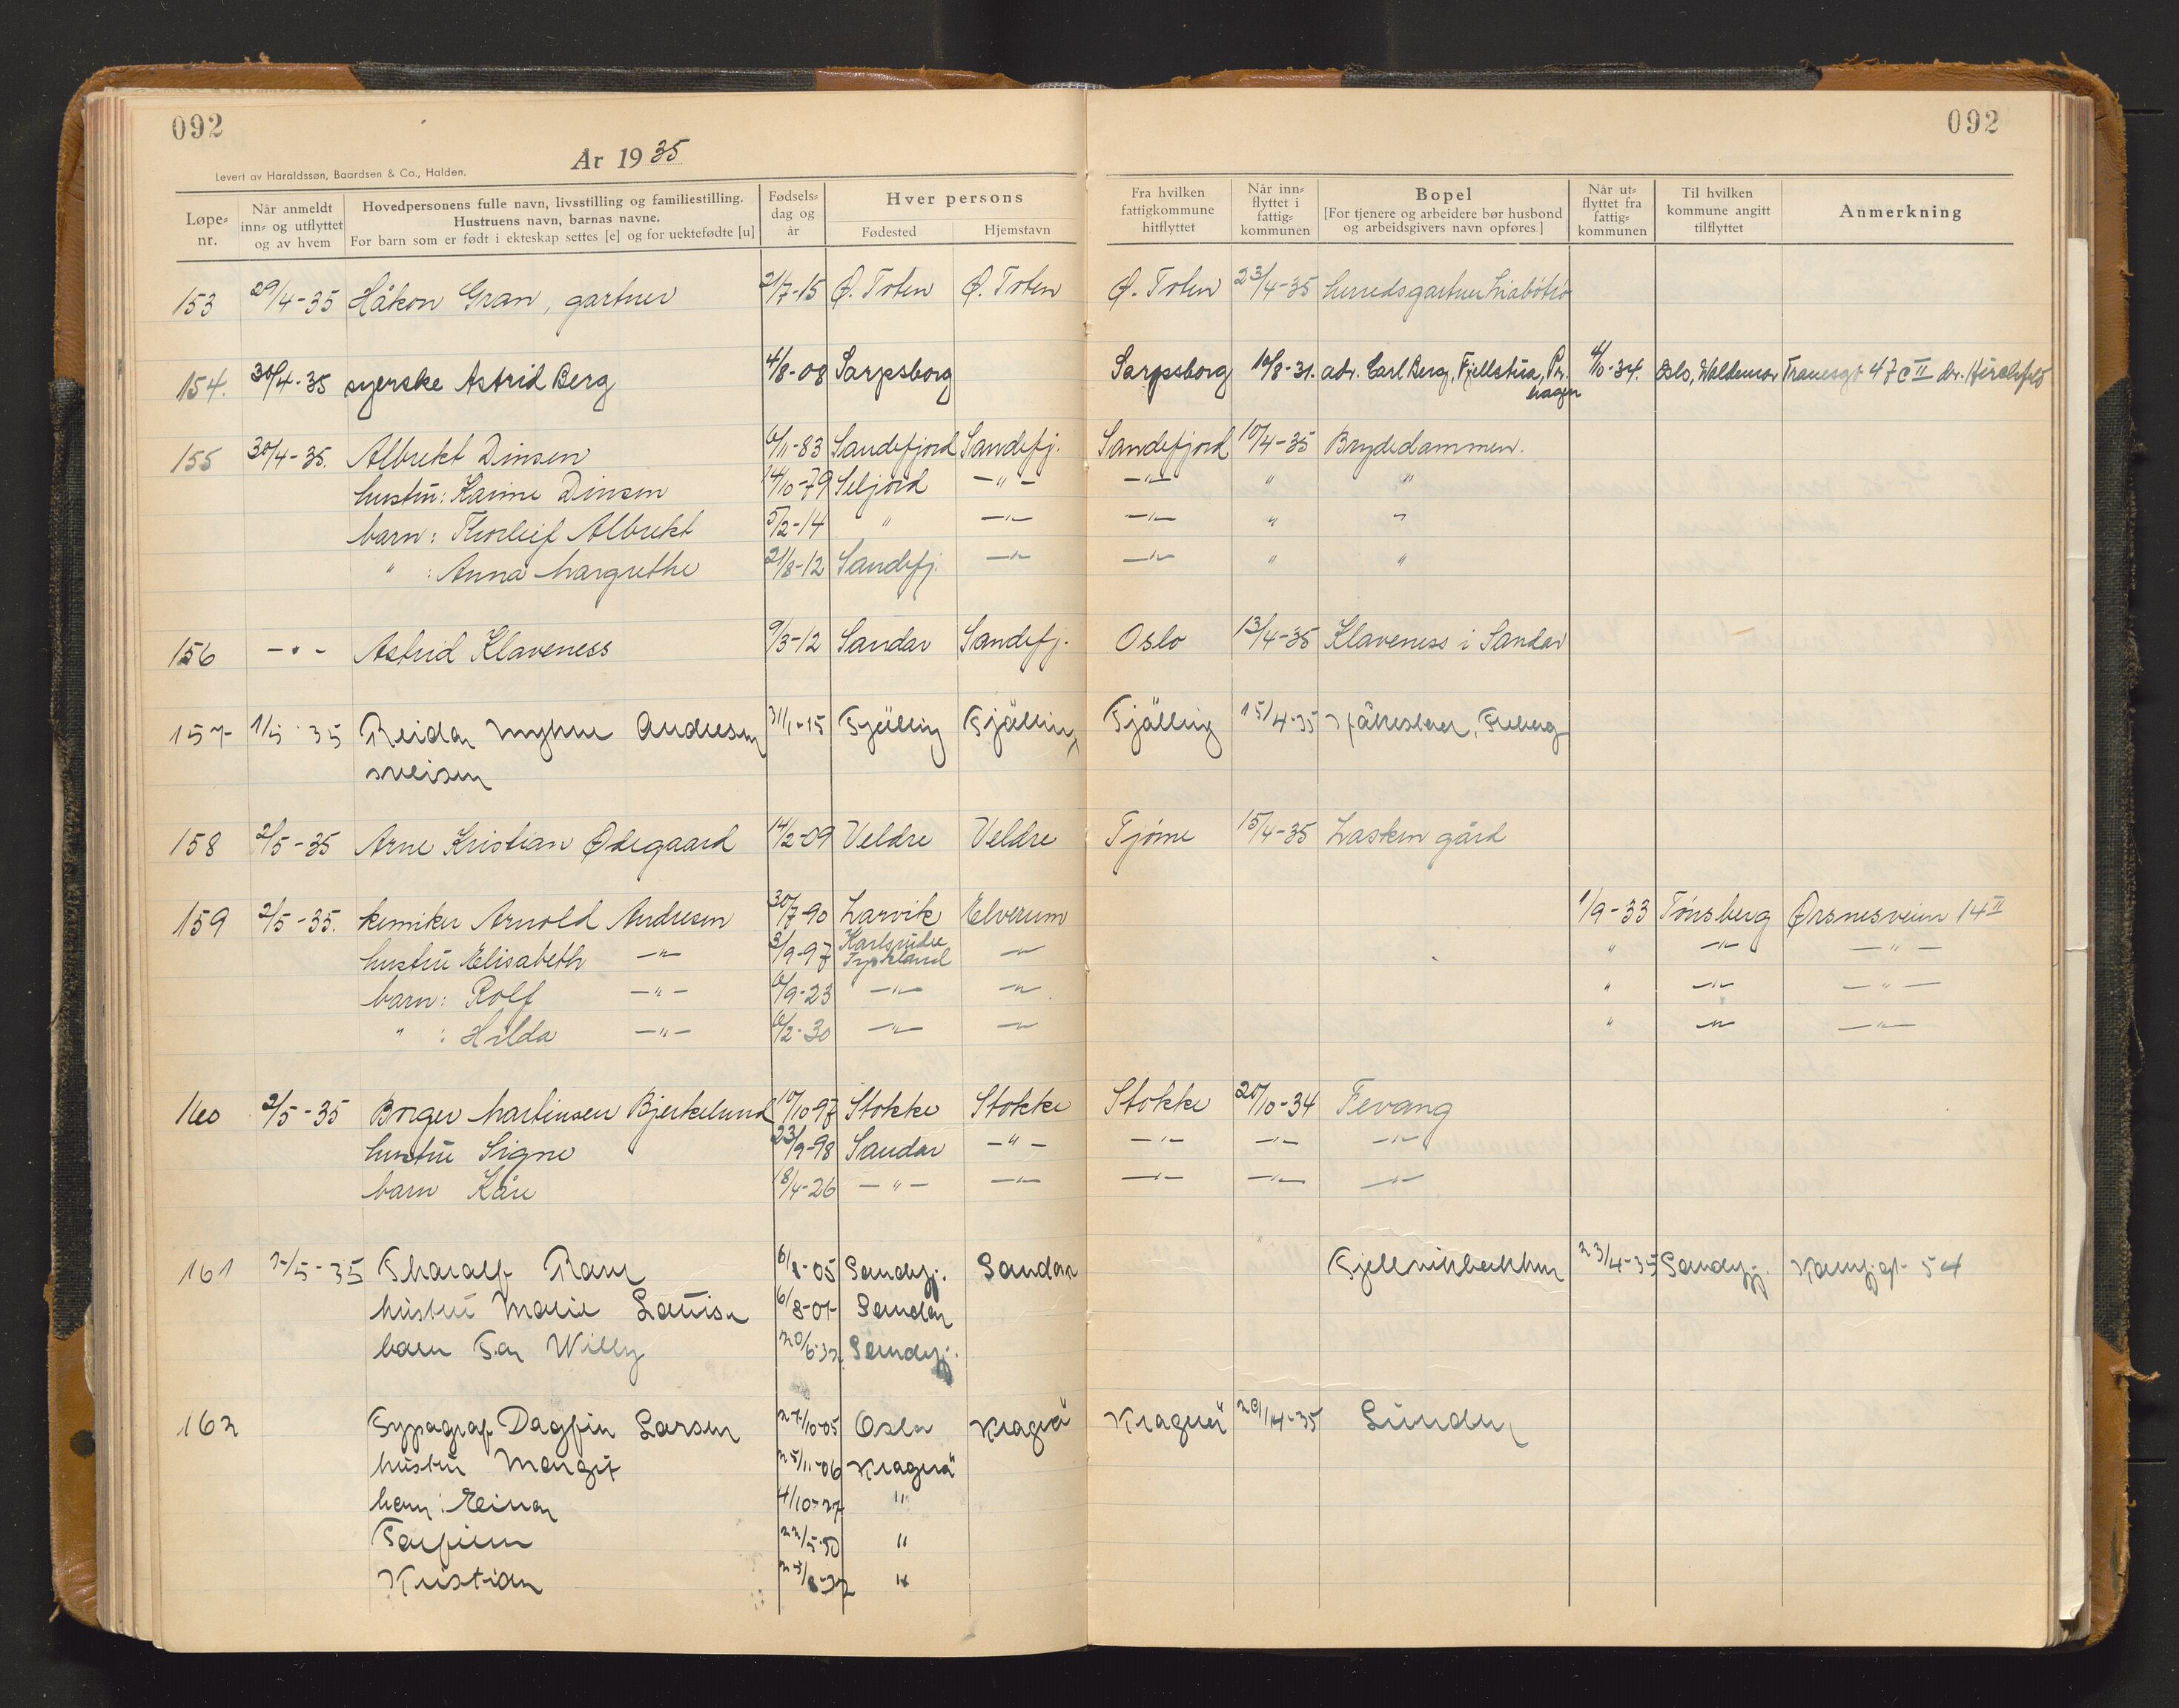 092
092
År 1935
Levert av Haraldssøn, Baardsen & Co., Halden.
Løpe-nr. Når anmeldt inn- og utflyttet og av hvem Hovedpersonens fulle navn, livsstilling og familiestilling. Hustruens navn, barnas navne. For barn som er født i ekteskap settes [e] og for uektefødte [u] Fødsels-dag og år Hver persons Fødested Hjemstavn Fra hvilken fattigkommune hitflyttet Når inn-flyttet i fattig-kommunen Bopel [For tjenere og arbeidere bør husbond og arbeidsgivers navn opføres.] Når ut-flyttet fra fattig-kommunen Til hvilken kommune angitt tilflyttet Anmerkning
153 29/4-35 Håkon Gran, gartner 2/7-15 Ø. Toten Ø. Toten Ø. Toten 23/4-35 herredsgartner
154. 30/4-35 syerske Astrid Berg 4/8-08 Sarpsborg Sarpsborg 10/8-31. adr. Carl Berg, Fjellstua, Pr. hagen 4/10-34. Oslo, Waldemar Tranesgt 47c II dr. Hirchfeld
155 30/4-35. Albrekt Dinsen 6/11-83 Sandefjord Sandefj. Sandefjord 10/4-35 Brydedammen.
hustru: Karine Dinsen 14/10-79 Seljord -"- -"- " "
barn: Thorleif Albrekt 5/2-14 " -"- -"- " "
" : Anna Margrethe 21/8-12 Sandefj. -"- -"- " "
156 -"- Astrid Klaveness 9/3-12 Sandar Sandefj. Oslo 13/4-35 Klaveness i Sandar
157 1/5 35 Reidar Myhre Andresen 31/1-15 Tjølling Tjølling Tjølling 15/4-35 Freberg
sveiser
158 2/5-35 Arne Kristian Ødegaard 14/2-09 Veldre Veldre Tjøme 15/4-35 Lasken gård
159 2/5-35. kemiker Arnold Andresen 30/7-90 Larvik Elverum 1/9-33 Tønsberg Ørsnesveien 14 II
hustru Elisabeth -"- 3/9-97 Karlsruhe Tyskland -"- " -"- -"-
barn: Rolf -"- 6/9-23 -"- -"- " -"- -"-
" : Hilda -"- 6/2-30 -"- -"- " -"- -"-
160 2/5-35 Borger Martinsen Bjerkelund 10/10-97 Stokke Stokke Stokke 20/10-34 Fevang
hustru Signe 23/9-98 Sandar -"- -"- -"- -"-
barn Kåre 18/4-26 -"- -"- -"- -"- -"-
161 2/5-35 Tharalf 6/8-05 Sandefj. Sandar Fjellvikbakken 23/4-35 Sandefj. 54
hustru Marie Louise 6/8-07 Sandar
barn Tor Willy 20/6-32 Sandefj.
162 Typograf Dagfin Larsen 27/10-05 Oslo Kragerø Kragerø 20/4-35 Lunden
hustru Margit 25/11-06 Kragerø
barn: Reinar 4/10-27 "
Torfinn 22/5-30 "
Kristian 25/8-32 "